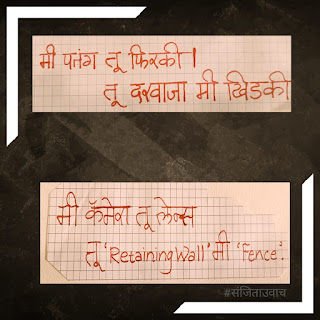 मी पतंग तू फिरकी।
तू दरवाजा मी खिडकी
मी कॅमेरा तू लेन्स
तू 'Retaining Wall' मी 'Fence'.
#संजिताउवाच